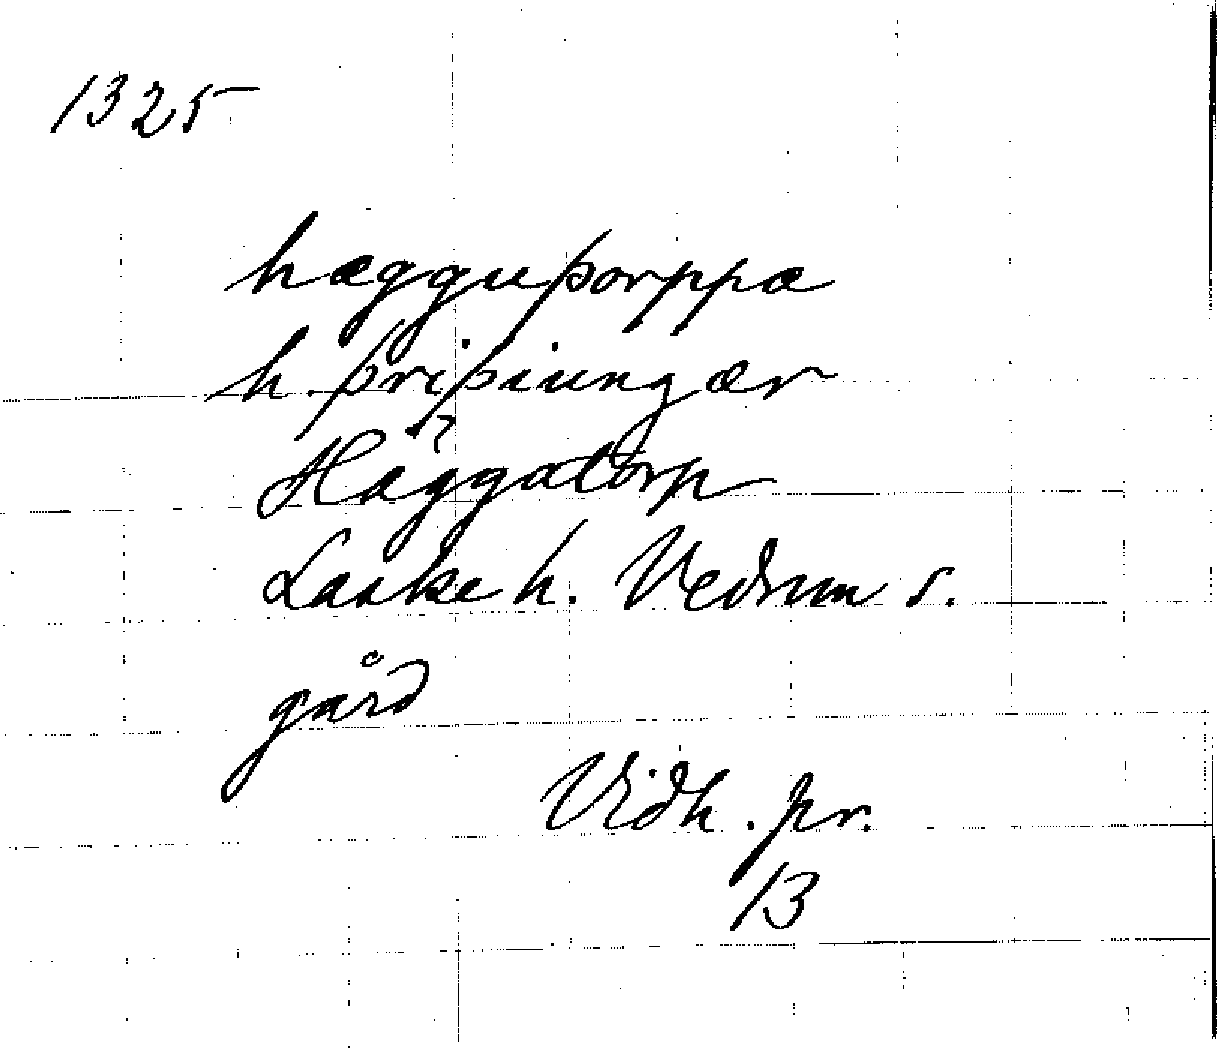 1325
hægguþorppæ
h. þriþiungær
Häggatorp
Laske h. Vedum s.
gård
Vidh. pr.
13